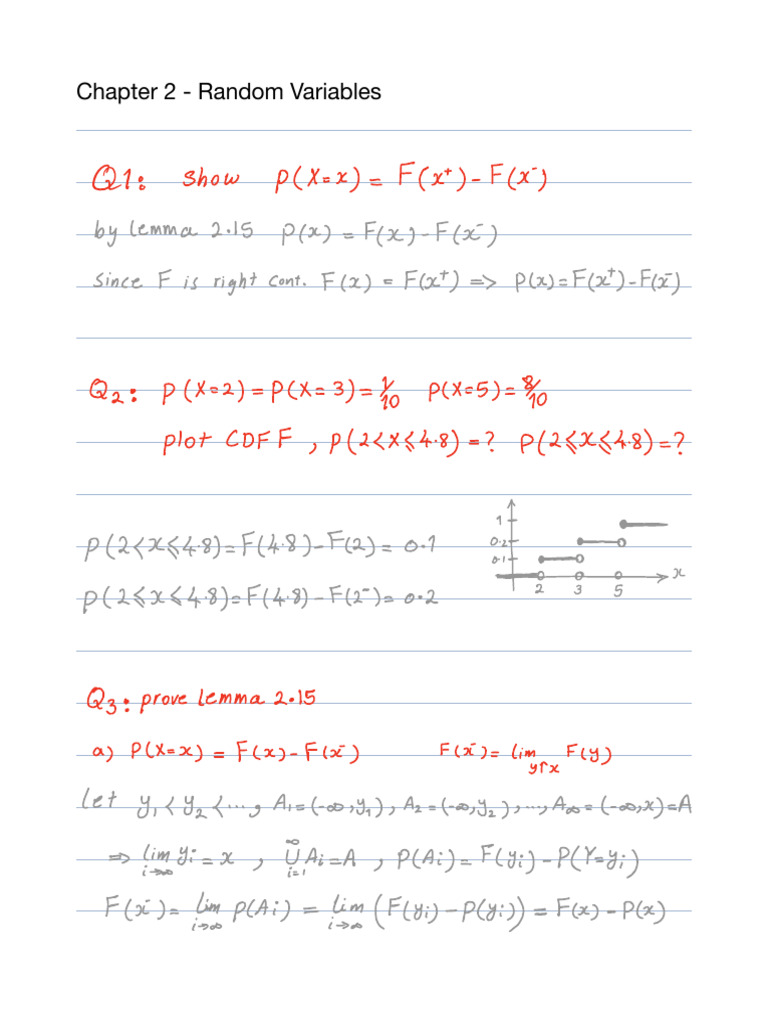 Chapter 2 - Random Variables
Q1: show P(X=x) = F(x⁺) - F(x⁻)
by lemma 2.15 P(x) = F(x) - F(x⁻)
since F is right cont. F(x) = F(x⁺) => P(x) = F(x⁺) - F(x⁻)
Q2: P(X=2) = P(X=3) = 1/10 P(X=5) = 8/10
plot CDF F, P(2<X≤4.8) = ? P(2≤X≤4.8) = ?
P(2<X≤4.8) = F(4.8) - F(2) = 0.1
P(2≤X≤4.8) = F(4.8) - F(2⁻) = 0.2
1
0.2
0.1
2 3 5 x
Q3: prove lemma 2.15
a) P(X=x) = F(x) - F(x⁻) F(x⁻) = lim_{y↑x} F(y)
let y₁ < y₂ < ..., A₁ = (-∞,y₁), A₂ = (-∞,y₂), ..., A∞ = (-∞,x) = A
=> lim_{i→∞} yᵢ = x, ∪_{i=1}^{∞} Aᵢ = A, P(Aᵢ) = F(yᵢ) - P(Y=yᵢ)
F(x⁻) = lim_{i→∞} P(Aᵢ) = lim_{i→∞} (F(yᵢ) - P(yᵢ)) = F(x) - P(x)